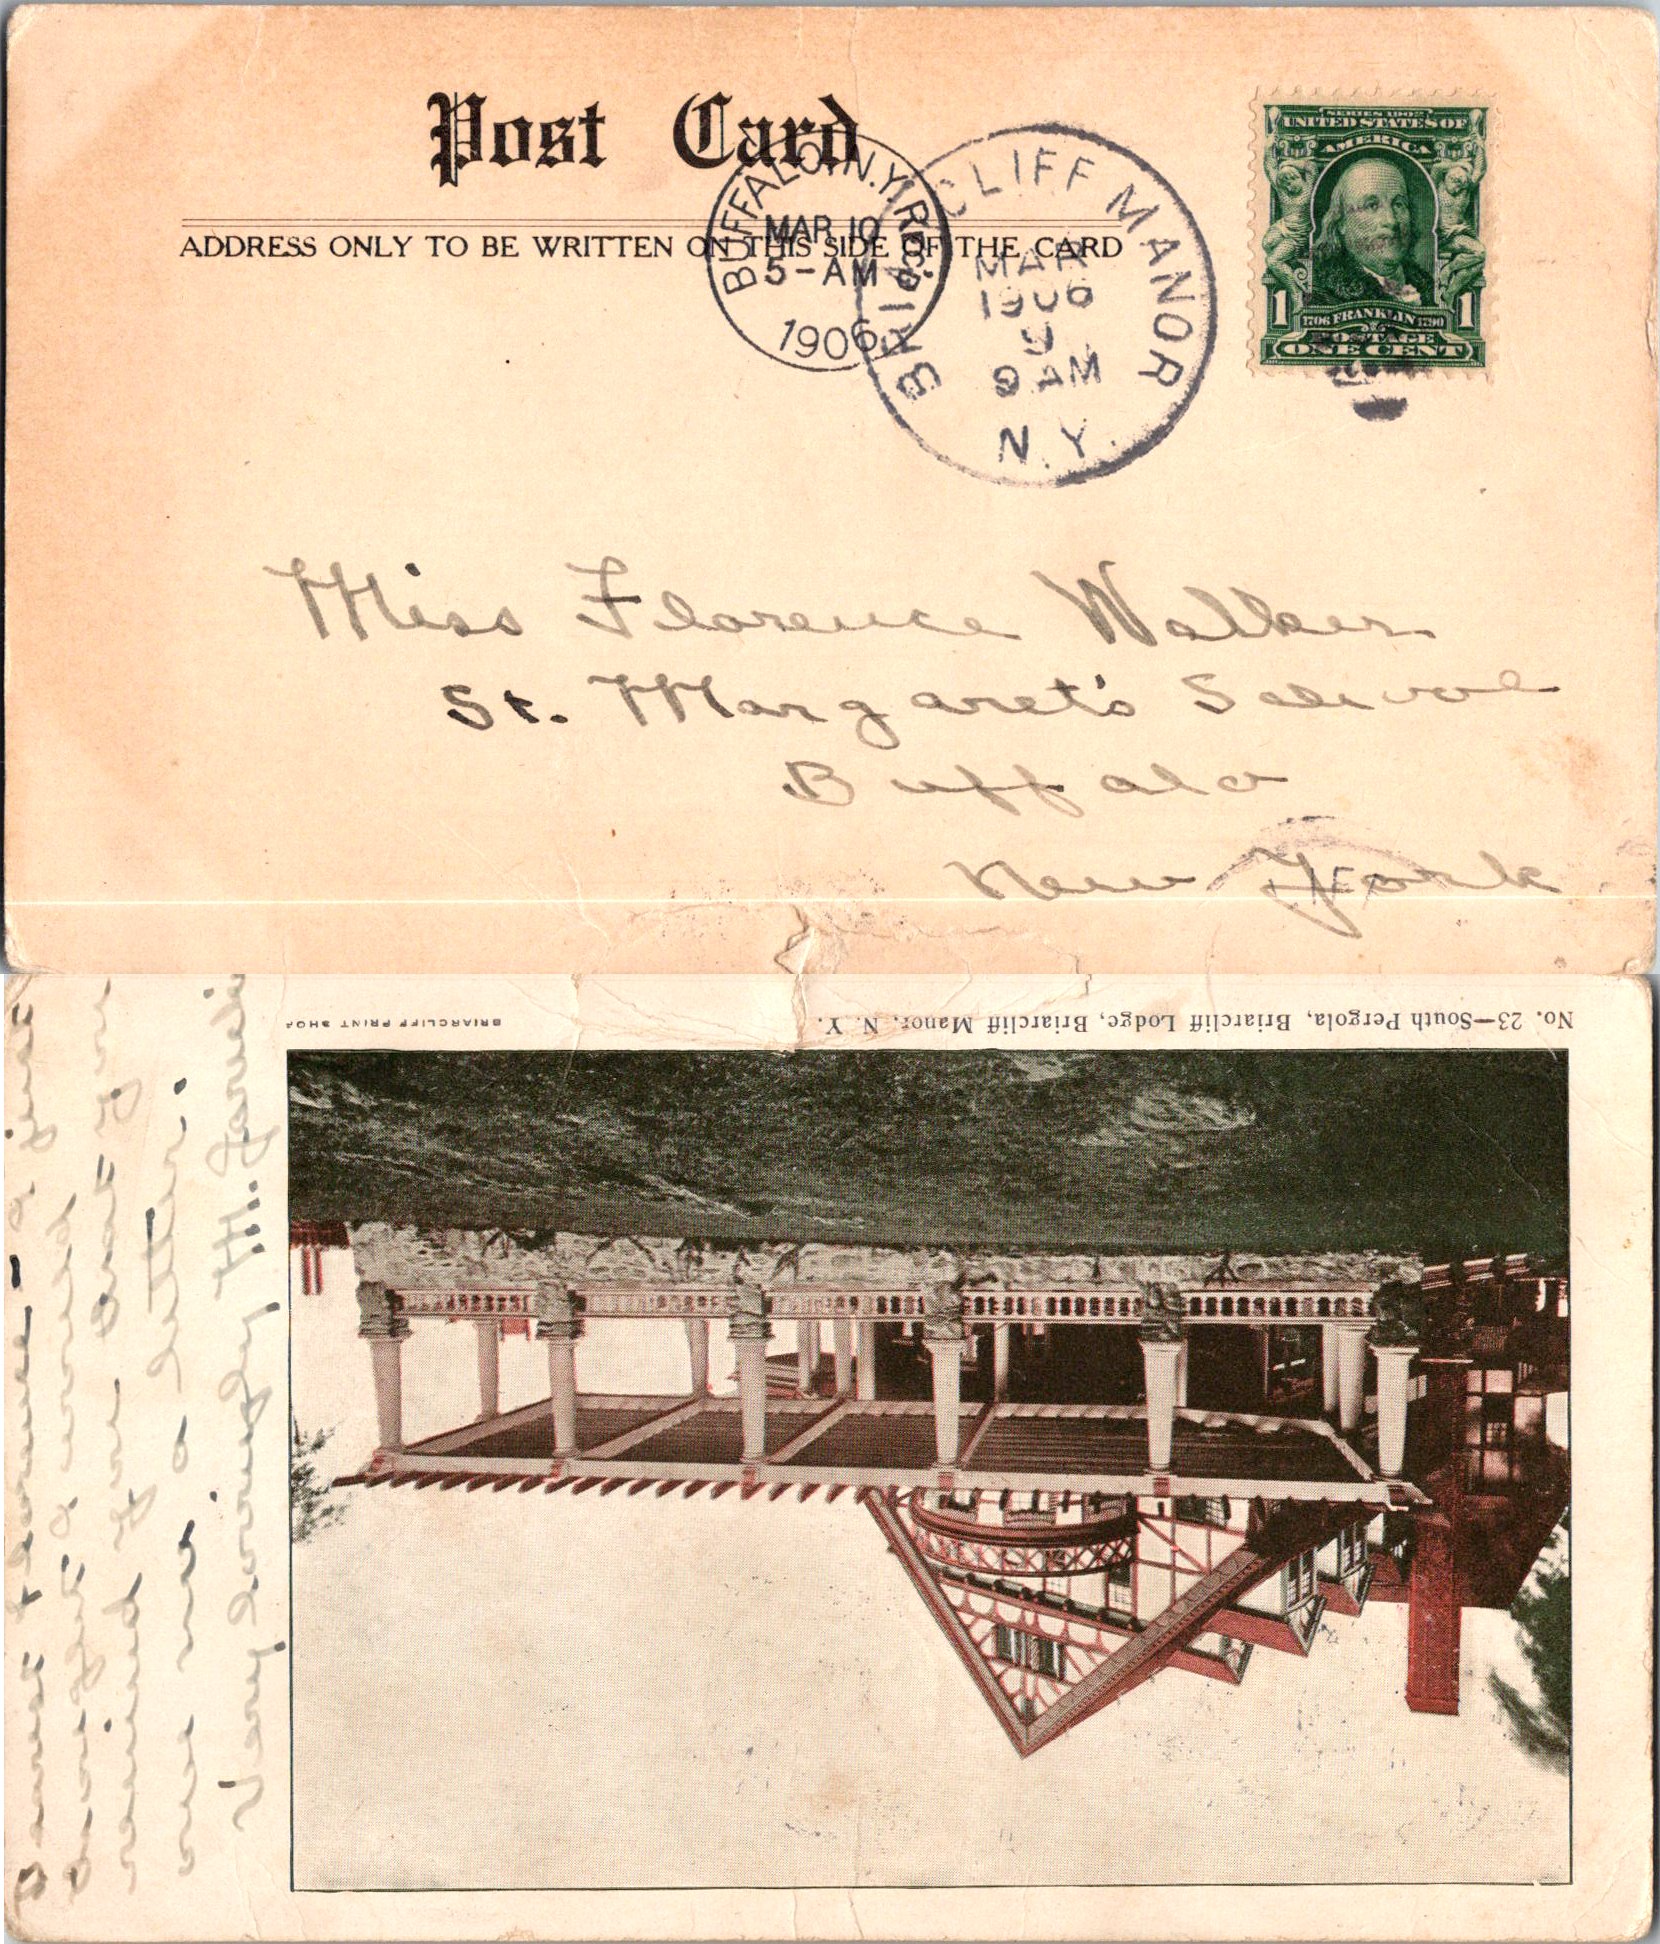 Post Card
ADDRESS ONLY TO BE WRITTEN ON THIS SIDE OF THE CARD
BUFFALO, N.Y. REC'D.
MAR 10
5-AM
1906
BRIARCLIFF MANOR
MAR
9
1906
9 AM
N.Y.
SERIES 1902
UNITED STATES OF
AMERICA
1 1706 FRANKLIN 1790 1
POSTAGE
ONE CENT
Miss Florence Walker
St. Margaret's School
Buffalo
New York
No. 23—South Pergola, Briarcliff Lodge, Briarcliff Manor, N. Y.
BRIARCLIFF PRINT SHOP
Dearest Florence - I just
thought I would
remind you that you
owe me a letter.
Very lovingly H.